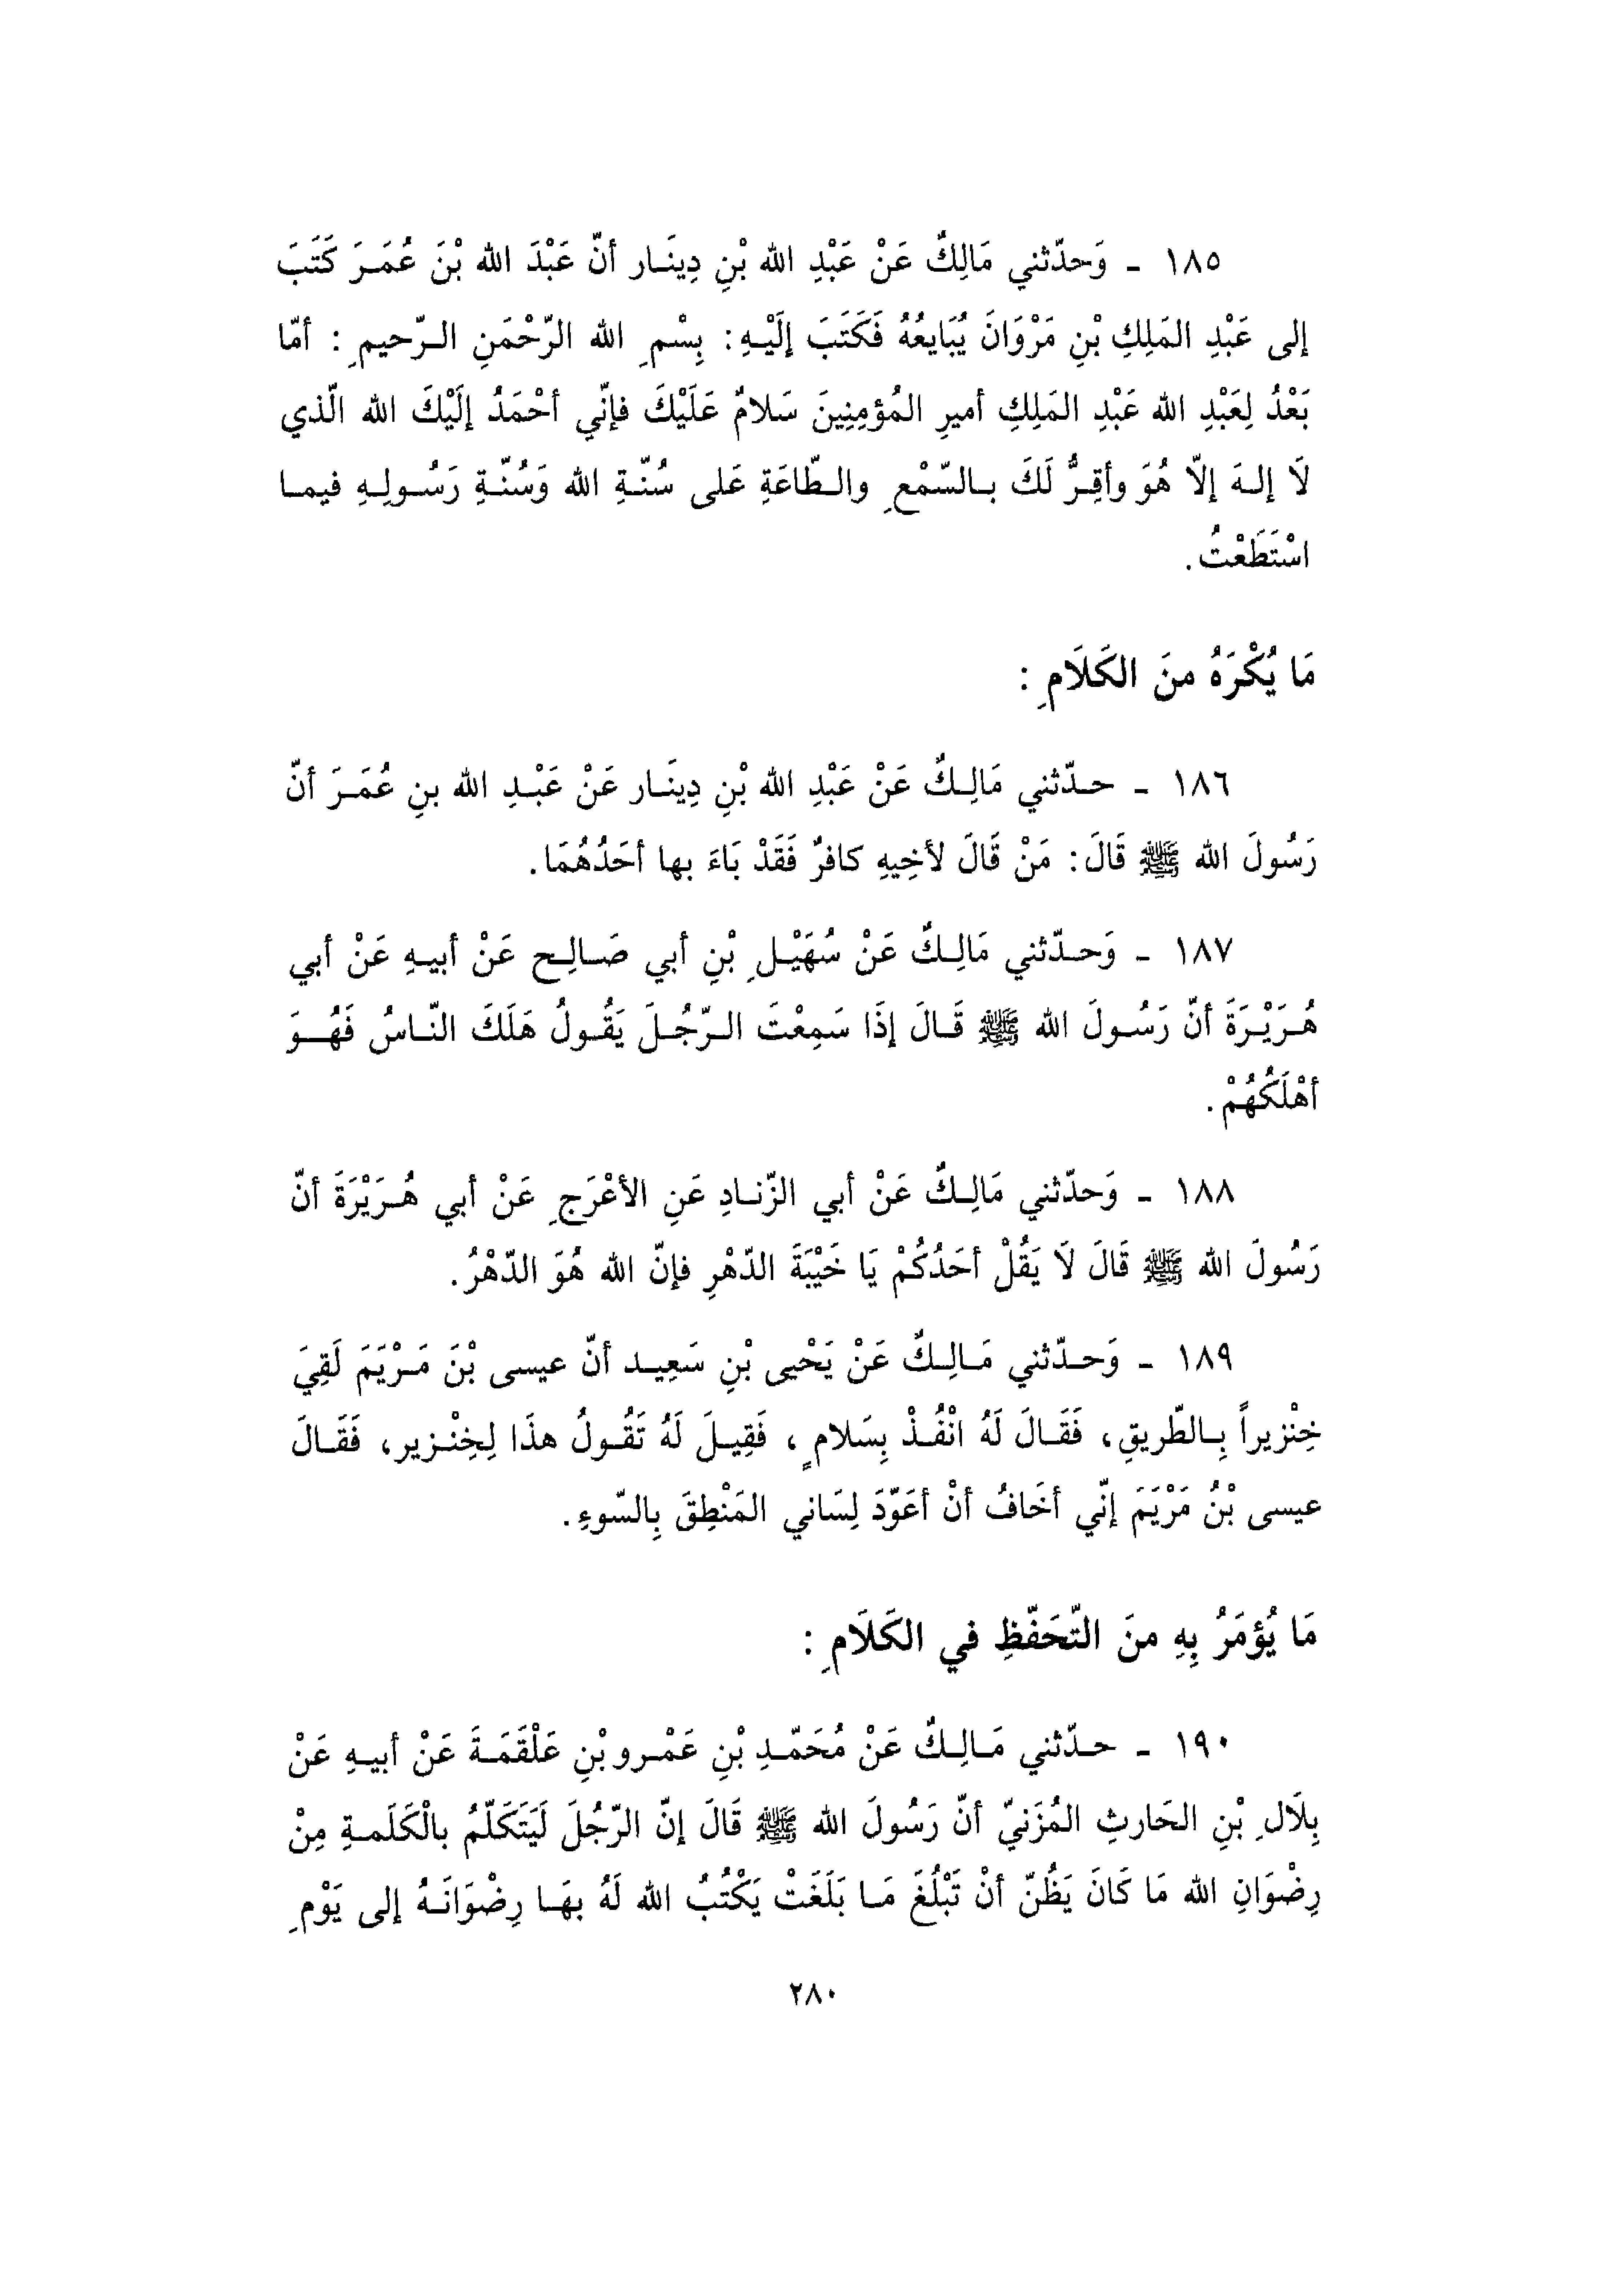 ١٨٥ - وَحدّثني مَالِكٌ عَنْ عَبْدِ الله بْنِ دِينَار أنّ عَبْدَ الله بْنَ عُمَرَ كَتَبَ
إلى عَبْدِ المَلِكِ بْنِ مَرْوَانَ يُبَايعُهُ فَكَتَبَ إلَيْهِ: بِسْمِ الله الرّحْمَنِ الرّحيمِ: أمّا
بَعْدُ لِعَبْدِ الله عَبْدِ المَلِكِ أميرِ المُؤمِنِينَ سَلامٌ عَلَيْكَ فإنّي أحْمَدُ إلَيْكَ الله الّذي
لَا إلهَ إلاّ هُوَ وأقِرُّ لَكَ بالسّمْعِ والطّاعَةِ عَلى سُنّةِ الله وَسُنّةِ رَسُولِهِ فيما
اسْتَطَعْتُ.
مَا يُكْرَهُ منَ الكَلَامِ:
١٨٦ - حدّثني مَالِكٌ عَنْ عَبْدِ الله بْنِ دِينَار عَنْ عَبْدِ الله بنِ عُمَرَ أنّ
رَسُولَ الله ﷺ قَالَ: مَنْ قَالَ لأخِيهِ كافرٌ فَقَدْ بَاءَ بها أحَدُهُمَا.
١٨٧ - وَحدّثني مَالِكٌ عَنْ سُهَيْلِ بْنِ أبي صَالِح عَنْ أبيهِ عَنْ أبي
هُرَيْرَةَ أنّ رَسُولَ الله ﷺ قَالَ إذَا سَمِعْتَ الرّجُلَ يَقُولُ هَلَكَ النّاسُ فَهُوَ
أهْلَكُهُمْ.
١٨٨ - وَحدّثني مَالِكٌ عَنْ أبي الزّنادِ عَنِ الأعْرَجِ عَنْ أبي هُرَيْرَةَ أنّ
رَسُولَ الله ﷺ قَالَ لَا يَقُلْ أحَدُكُمْ يَا خَيْبَةَ الدّهْرِ فإنّ الله هُوَ الدّهْرُ.
١٨٩ - وَحدّثني مَالِكٌ عَنْ يَحْيى بْنِ سَعِيد أنّ عيسى بْنَ مَرْيَمَ لَقِيَ
خِنْزيراً بِالطّريقِ، فَقَالَ لَهُ انْفُذْ بِسَلامٍ، فَقِيلَ لَهُ تَقُولُ هذَا لِخِنْزير، فَقَالَ
عيسى بْنُ مَرْيَمَ إنّي أخَافُ أنْ أعَوّدَ لِسَاني المَنْطِقَ بِالسّوءِ.
مَا يُؤمَرُ بِهِ منَ التّحَفّظِ في الكَلَامِ:
١٩٠ - حدّثني مَالِكٌ عَنْ مُحَمّدِ بْنِ عَمْرو بْنِ عَلْقَمَةَ عَنْ أبيهِ عَنْ
بِلَالِ بْنِ الحَارثِ المُزَنيّ أنّ رَسُولَ الله ﷺ قَالَ إنّ الرّجُلَ لَيَتَكَلّمُ بالْكَلَمةِ مِنْ
رِضْوَانِ الله مَا كَانَ يَظُنّ أنْ تَبْلُغَ مَا بَلَغَتْ يَكْتُبُ الله لَهُ بهَا رِضْوَانَهُ إلى يَوْمِ
٢٨٠